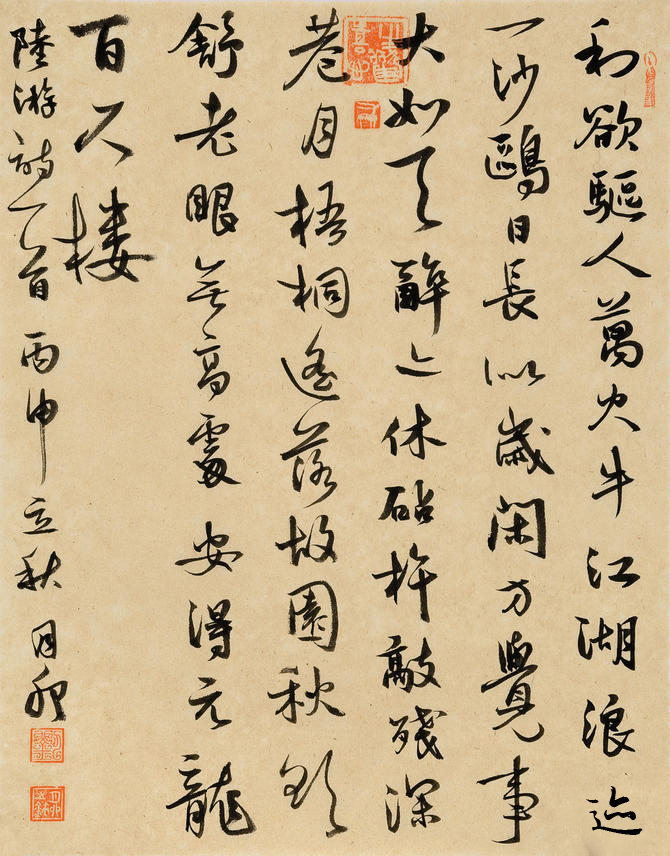 利欲驅人萬火牛江湖浪迹
一沙鷗日長似歲閑方覺事
大如天醉亦休砧杵敲殘深
巷月梧桐遙落故園秋欲
舒老眼無高處安得元龍
百尺樓
陸游詩一首丙申立秋